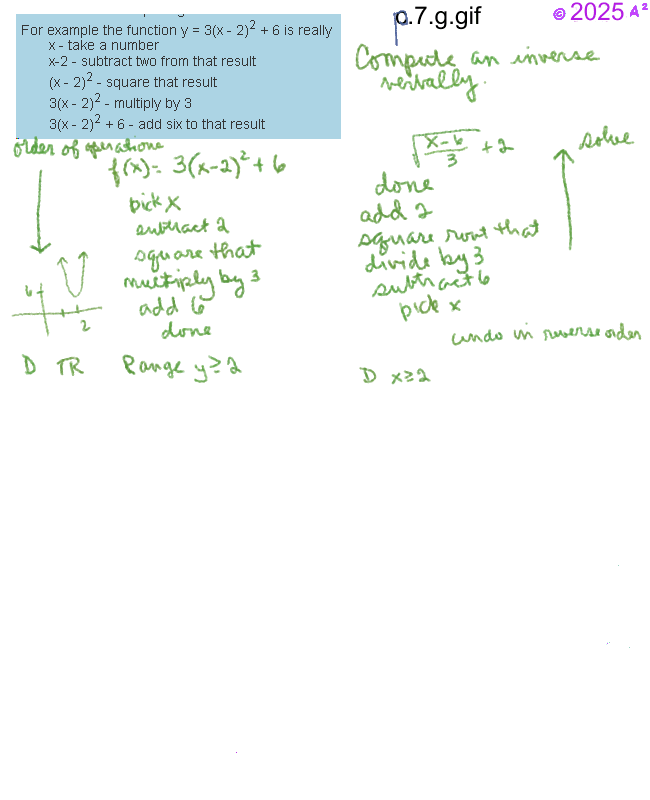 p.7.g.gif
© 2025 A²
For example the function y = 3(x - 2)² + 6 is really
x - take a number
x-2 - subtract two from that result
(x - 2)² - square that result
3(x - 2)² - multiply by 3
3(x - 2)² + 6 - add six to that result
order of operations
f(x) = 3(x-2)² + 6
pick x
subtract 2
square that
multiply by 3
add 6
done
6
2
D TR Range y ≥ 2
Compute an inverse
verbally.
√((x-6)/3) + 2
solve
done
add 2
square root that
divide by 3
subtract 6
pick x
undo in reverse order
D x ≥ 2